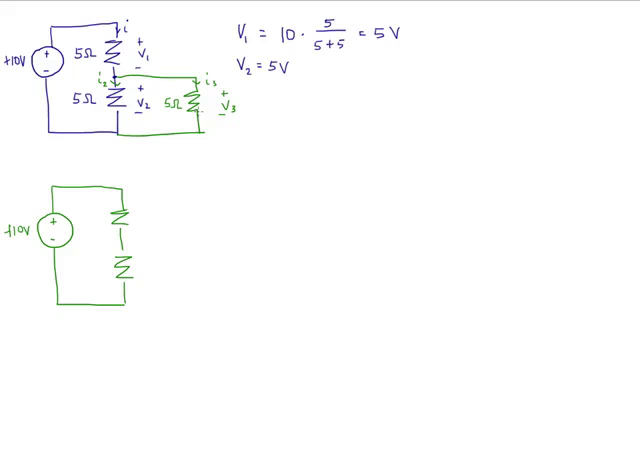 i
+10V
+
-
5Ω
+
V₁
-
i₂
5Ω
+
V₂
-
i₃
5Ω
+
V₃
-
V₁ = 10 · 5/(5+5) = 5 V
V₂ = 5V
+10V
+
-